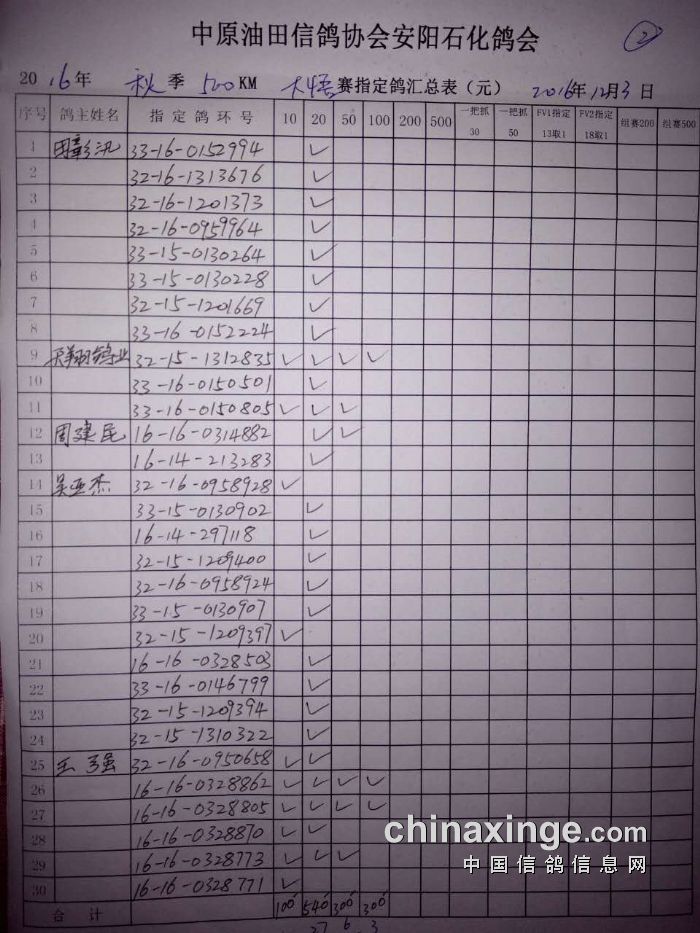 中原油田信鸽协会安阳石化鸽会
②
2016年 秋季 500KM 大悟赛指定鸽汇总表（元） 2016年12月3日
序号 鸽主姓名 指定鸽环号 10 20 50 100 200 500 一把抓30 一把抓50 FV1指定13取1 FV2指定18取1 组赛200 组赛500
1 33-16-0152994 ✓
2 32-16-1313676 ✓
3 32-16-1201373 ✓
4 32-16-0959964 ✓
5 33-15-0130264 ✓
6 33-15-0130228 ✓
7 32-15-1201669 ✓
8 33-16-0152224 ✓
9 天翔鸽业 32-15-1312835 ✓ ✓ ✓ ✓
10 33-16-0150501 ✓
11 33-16-0150805 ✓ ✓ ✓
12 周建民 16-16-0314882 ✓ ✓
13 16-14-213283 ✓
14 吴亚杰 32-16-0958928 ✓
15 33-15-0130902 ✓
16 16-14-297118 ✓
17 32-15-1209400 ✓
18 32-16-0958924 ✓
19 33-15-0130907 ✓
20 32-15-1209397 ✓
21 16-16-0328503 ✓
22 33-16-0146799 ✓
23 32-15-1209394 ✓
24 32-15-1310322 ✓
25 王强 32-16-0950658 ✓ ✓
26 16-16-0328862 ✓ ✓ ✓ ✓
27 16-16-0328805 ✓ ✓ ✓ ✓
28 16-16-0328870 ✓ ✓
29 16-16-0328773 ✓ ✓ ✓
30 16-16-0328771 ✓
合计 100 540 300 300
27 6 3
chinaxinge.com
中国信鸽信息网